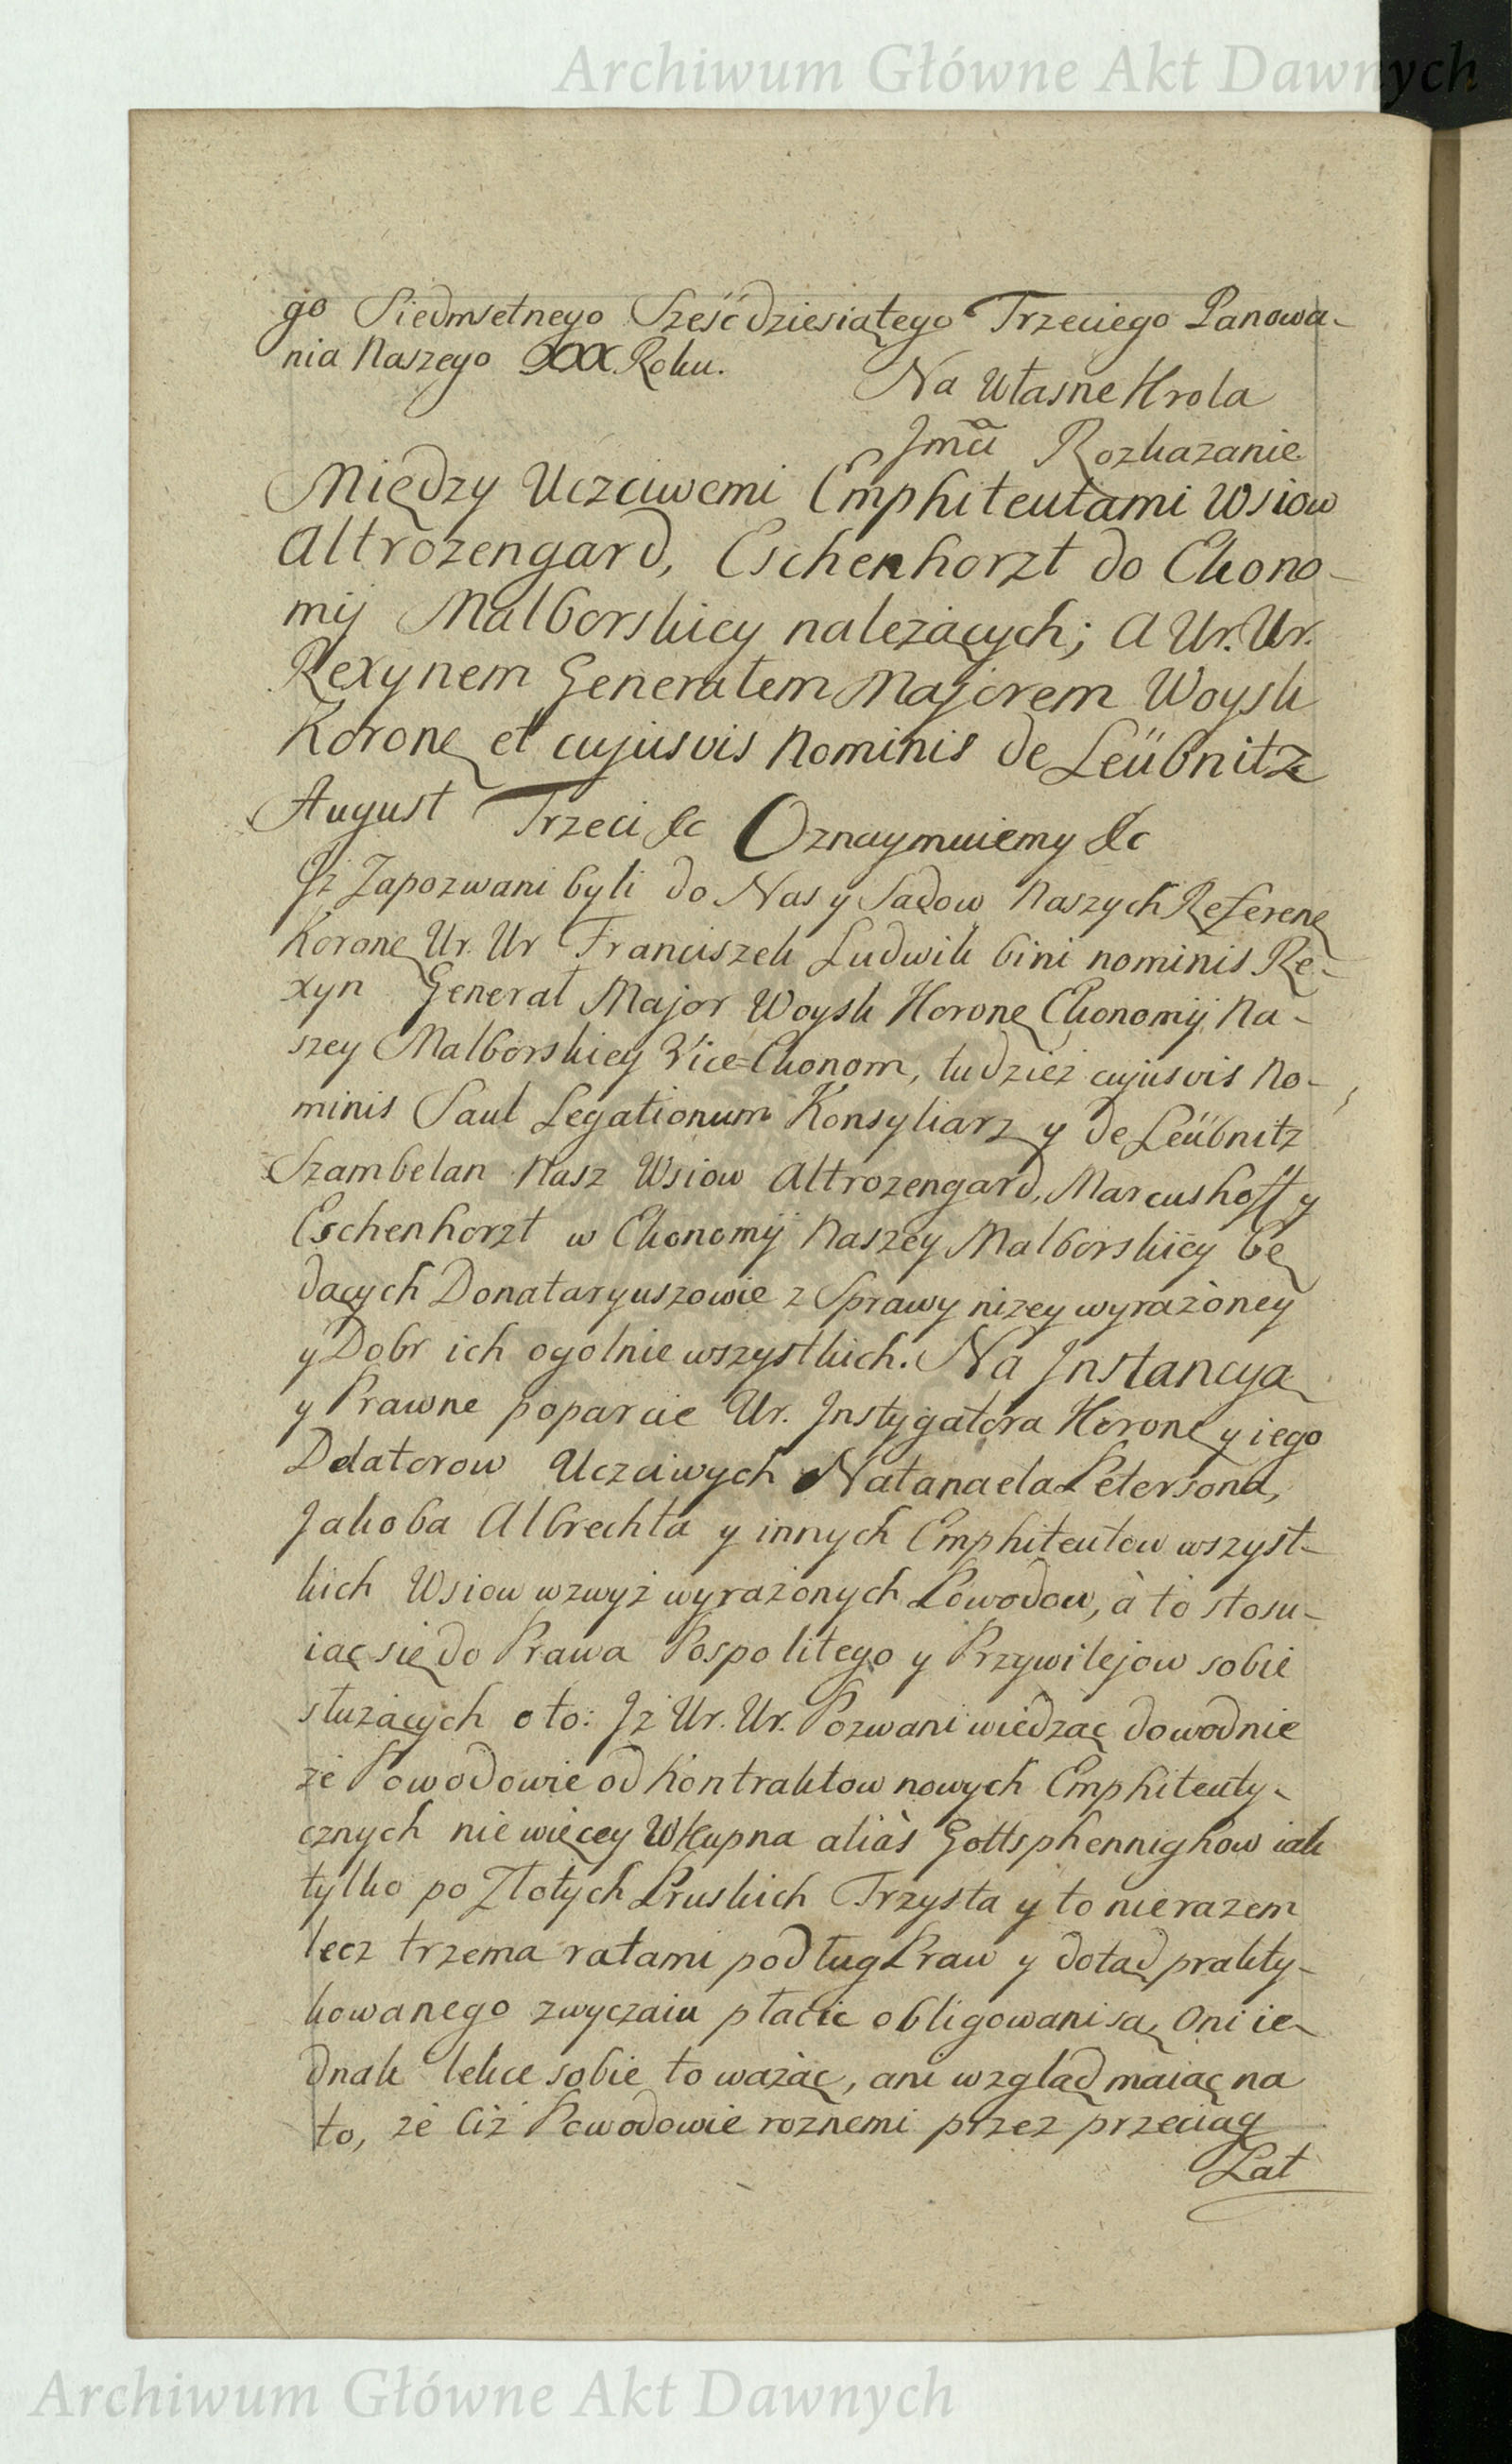 Archiwum Główne Akt Dawnych
go Siedmsetnego Sześćdziesiątego Trzeciego Panowa-
nia Naszego XXX Roku.
Na Własne Krola
Jmci Rozkazanie
Między Uczciwemi Emphiteutami Wsiow
Altrozengard, Eschenhorzt do Ekono-
mij Malborskiey należących; A Ur. Ur.
Rexynem Generałem Majorem Woysk
Koronę et cujusvis Nominis de Leübnitz
August Trzeci &c Oznaymuiemy &c
Iż Zapozwani byli do Nas y Sądow Naszych Referenę
Koronę Ur. Ur Franciszek Ludwik bini nominis Re-
xyn Generał Major Woysk Koronę Ekonomij Na-
szey Malborskiey Vice=Ekonom, tudzież cujusvis No-
minis Saul Legationum Konsyliarz y de Leübnitz
Szambelan Nasz Wsiow Altrozengard, Marcushoff y
Eschenhorzt w Ekonomij Naszey Malborskiey bę
dących Donataryuszowie z Sprawy niżey wyrażoney
y Dobr ich ogolnie wszystkich. Na Instancyą
y Prawne poparcie Ur. Instygatora Koronę y iego
Delatorow Uczciwych Natanaela Petersona,
Jakoba Albrechta y innych Emphiteutow wszyst-
kich Wsiow wzwyż wyrażonych Powodow, à to stosu-
iąc się do Prawa Pospolitego y Przywilejow sobie
służących o to: Iż Ur. Ur. Pozwani wiedząc dowodnie
że Powodowie od Kontraktow nowych Emphiteuty-
cznych nie więcey Wkupna aliàs Gottsphennighow iak
tylko po Złotych Pruskich Trzysta y to nierazem
lecz trzema ratami podług Praw y dotąd prakty-
kowanego zwyczaiu płacić obligowani są, Oni ie-
dnak lekce sobie to ważąc, ani wzgląd maiąc na
to, że Ciż Powodowie roznemi przez przeciąg
Lat
Archiwum Główne Akt Dawnych